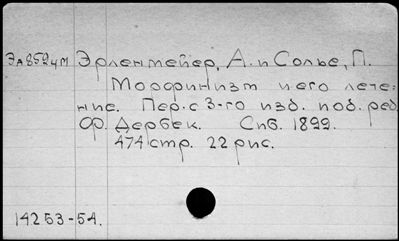 Эа852цМ Эрленмейер, А. и Солье, П.
Морфинизм и его лече-
ние. Пер. с 3-го изд. под ред.
Ф. Дербек. Спб. 1899.
474 стр. 22 рис.
14253-54.